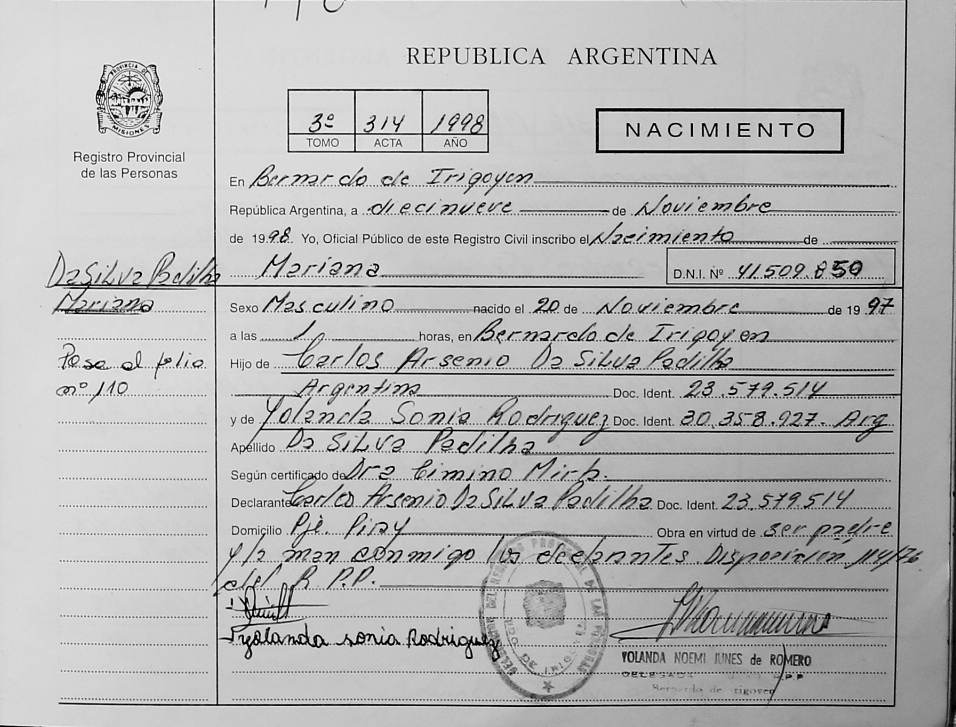 REPUBLICA ARGENTINA
PROVINCIA DE MISIONES
Registro Provincial
de las Personas
3º 314 1998
TOMO ACTA AÑO
NACIMIENTO
En Bernardo de Irigoyen
República Argentina, a diecinueve de Noviembre
de 1998. Yo, Oficial Público de este Registro Civil inscribo el Nacimiento de
Mariana D.N.I. Nº 41.509.850
Da SiLVa Padilha
Mariana
Sexo Masculino nacido el 20 de Noviembre de 1997
a las horas, en Bernardo de Irigoyen
Pasa al folio
nº 110
Hijo de Carlos Arsenio Da SiLVa Padilha
Argentina Doc. Ident. 23.579.514
y de Yolanda Sonia Rodriguez Doc. Ident. 30.358.927. Arg
Apéllido Da SiLVa Padilha
Según certificado de Dra Cimino Mirta.
Declarante Carlos Arsenio Da SiLVa Padilha Doc. Ident. 23.579.514
Domicilio Pje. Piray Obra en virtud de ser padre
y la man conmigo los declarantes. Disposición 114/76
del R.P.P.
Yolanda sonia Rodriguez
YOLANDA NOEMI JUNES de ROMERO
DELEGADA
Bernardo de Irigoyen